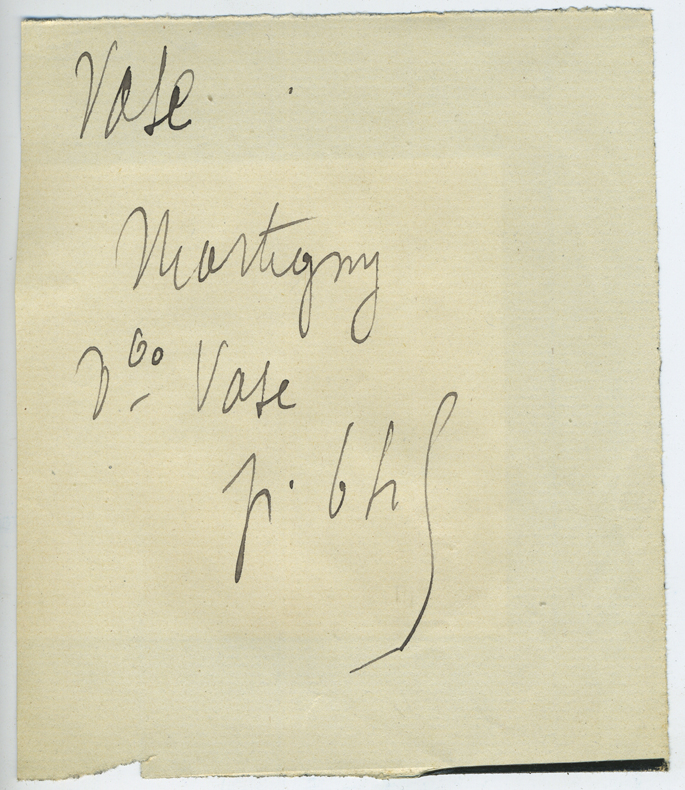 Vase
Martigny
Vase
p. 64